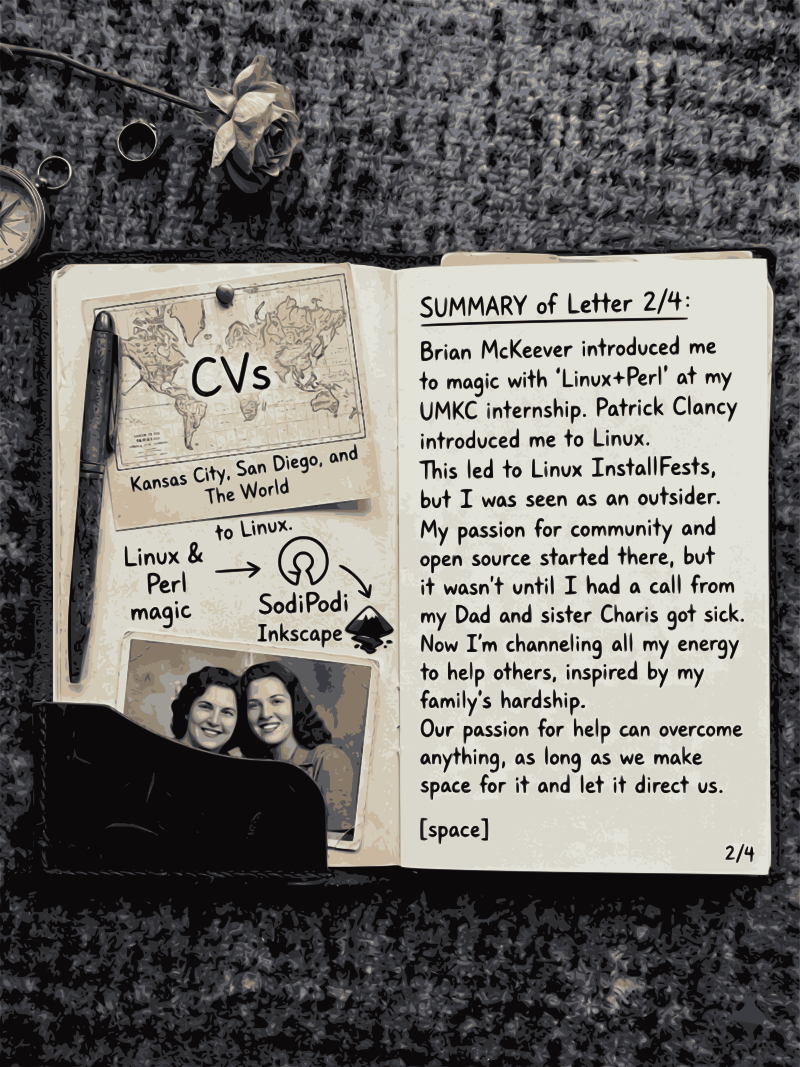 CVs
Kansas City, San Diego, and
The World
to Linux.
Linux &
Perl
magic
SodiPodi
Inkscape
SUMMARY of Letter 2/4:
Brian McKeever introduced me
to magic with 'Linux+Perl' at my
UMKC internship. Patrick Clancy
introduced me to Linux.
This led to Linux InstallFests,
but I was seen as an outsider.
My passion for community and
open source started there, but
it wasn't until I had a call from
my Dad and sister Charis got sick.
Now I'm channeling all my energy
to help others, inspired by my
family's hardship.
Our passion for help can overcome
anything, as long as we make
space for it and let it direct us.
[space]
2/4